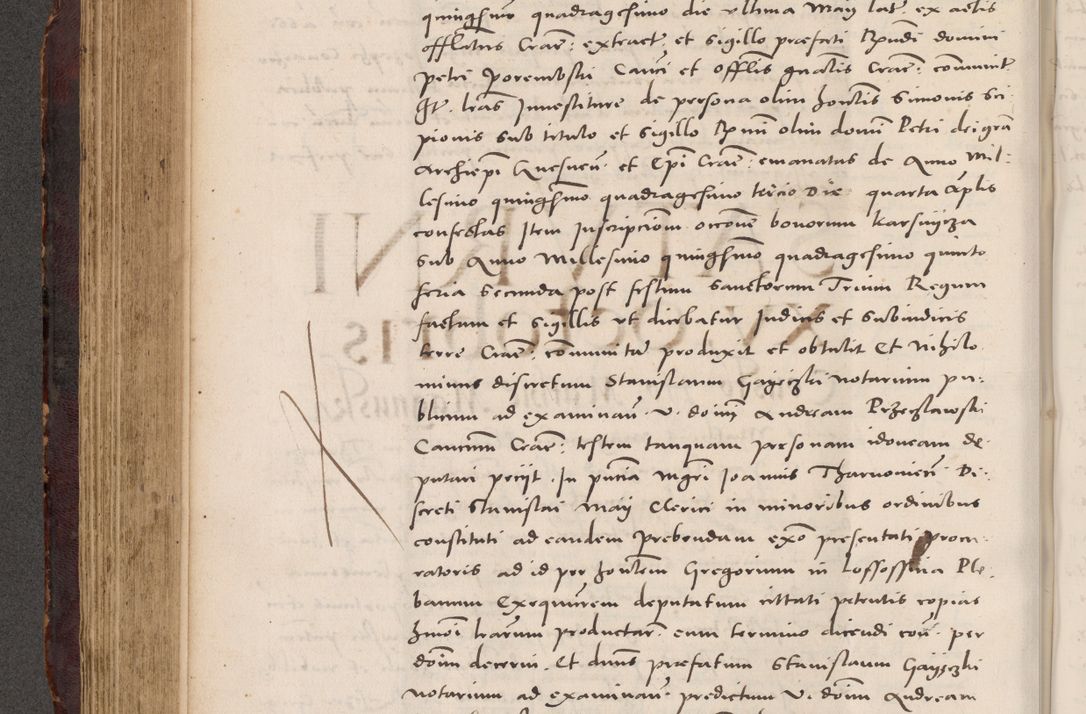 quingesimo quadragesimo die ultima Maij lat: ex actis
offlatus Crac: extract et sigillo præfati Rndi domini
petri Porembski Canci et offlis gnalis Crac: communit
Itt. lras Investiture de persona olim honlis Simonis Sci
pionis sub titulo et sigillo Rmi olim domi Petri dei gra
Archiepi Gnesnen: et Epi Crac: emanatas de Anno Mil:
lesimo quingesimo quadragesimo tercio Die quarta Aplis
confectas Item Inscripciom occone bonorum Karsnycza
sub Anno Millesimo quingesimo quadragesimo quinto
feria secunda post festum Sanctorum Trium Regum
factum et sigillis ut dicebatur Judicis et Subiudicis
terre Crac: communitam produxit et obtulit Et Nihilo
minus discretum Stanislaum Gayeczki notarium pu:
blicum ad examinan: v. domi Andream Przeczlawski
Canicum Crac: testem tanquam personam idoneam de
putari peciit. In pncia Mgri Joannis Tharnoviecz Di:
screti Stanislai Maij Clerici in minoribus ordinibus
constituti ad eandem prebendam exo presentati procu:
ratoris ad id per honlem Gregorium in Lossossina Ple:
banum Exequutorem deputatum cittati petentis copias
hmoi lrarum productar: eum termino dicendi con: per
dom decerni. Et dnus præfatum Stanislaum Gayeczki
notarium ad examinan: predictum V. dom Andream